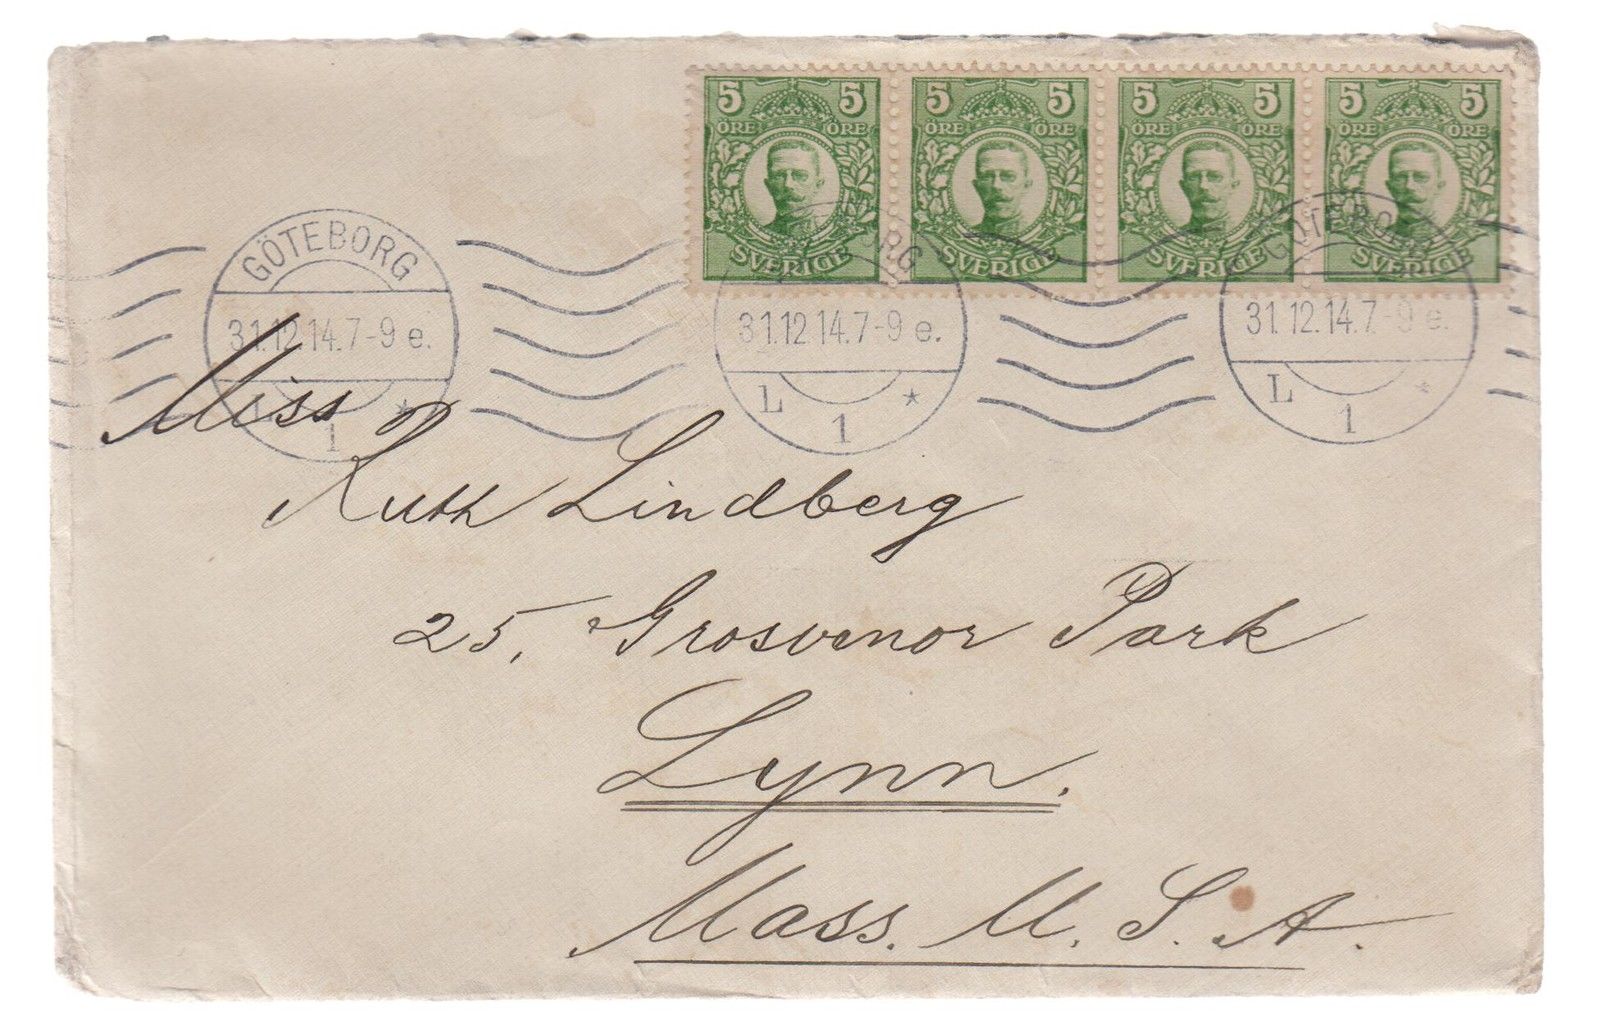 5 5 5 5 5 5 5 5
ÖRE ÖRE ÖRE ÖRE ÖRE ÖRE ÖRE ÖRE
SVERIGE SVERIGE SVERIGE SVERIGE
GÖTEBORG GÖTEBORG GÖTEBORG
31.12.14.7-9 e. 31.12.14.7-9 e. 31.12.14.7-9 e.
L * L * L *
1 1 1
Miss
Ruth Lindberg
25, Grosvenor Park
Lynn.
Mass. U. S. A.